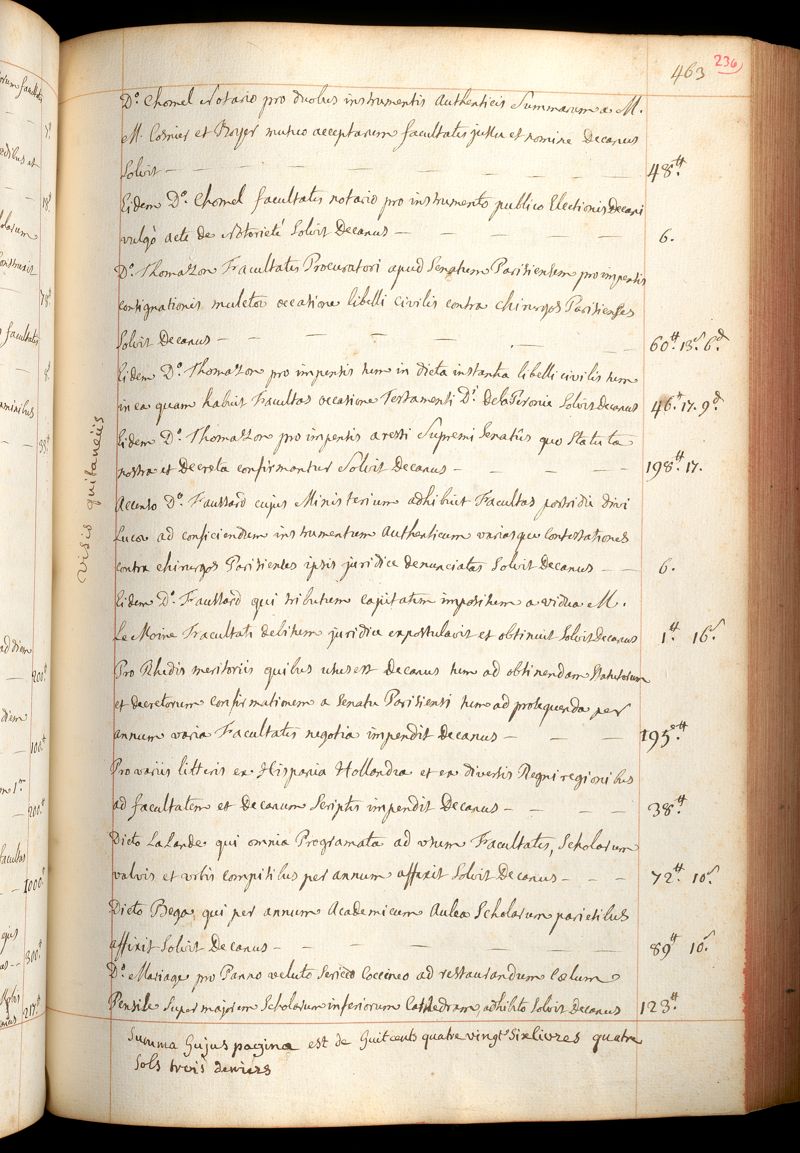 463 236
D.º Chomel Notario pro duobus instrumentis Authenticis Summarum a M.
M. Cosnier et Boyer mutuo acceptarum facultatis jussu et nomine Decanus
Solvit — 48.tt
Eidem D.º Chomel facultatis notario pro instrumento publico Electionis Decani
vulgò acte de Notorieté Solvit Decanus — 6.
D.º Thomazon Facultatis Procuratori apud Senatum Parisiensem pro impensis
consignationis muletæ occasione libelli civilis contra chirurgos Parisienses
Solvit Decanus — 60.tt 13.s 6.d
Eidem D.º Thomazon pro impensis tum in dicta instantia libelli civilis tum
in ea quam habuit Facultas occasione Testamenti D.i de la Peronie Solvit Decanus 46.tt 17. 9.d
Eidem D.º Thomazon pro impensis aresti Supremi Senatûs quo Statuta
nostra et Decreta confirmantur Solvit Decanus — 198.tt 17.
Accenso D.º Faussard cujus Ministerium adhibuit Facultas postridie divi
Lucæ ad conficiendum instrumentum Authenticum variasque contestationes
contra chirurgos Parisienses ipsis juridice denunciatas Solvit Decanus — 6.
Eidem D.º Faussard qui tributum capitatim impositum a vidua M.
Le Moine Facultati debitum juridice expostulavit et obtinuit Solvit Decanus 1.tt 16.s
Pro Rhedis meritoriis quibus usus est Decanus tum ad obtinendam Statutorum
et decretorum confirmationem a Senatu Parisiensi tum ad prosequenda per
annum varia Facultatis negotia impendit Decanus — 195.tt
Pro variis litteris ex Hispania Hollandia et ex diversis Regni regionibus
ad facultatem et Decanum Scriptis impendit Decanus — 38.tt
Dicto LaLande qui omnia Programata ad usum Facultatis, Scholarum
valvis et urbis compitibus per annum affixit Solvit Decanus — 72.tt 10.s
Dicto Bega qui per annum Academicum Aulea Scholarum parietibus
affixit Solvit Decanus — 89.tt 10.s
D.º Mariage pro Panno veluto Sericeo Coccineo ad restaurandum Cœlum
Pensile Super majorem Scholarum inferiorum Cathedram adhibito Solvit Decanus 123.tt
Summa hujus pagina est de huit cents quatre vingt Six livres quatre
Sols trois deniers
Visis quitanciis